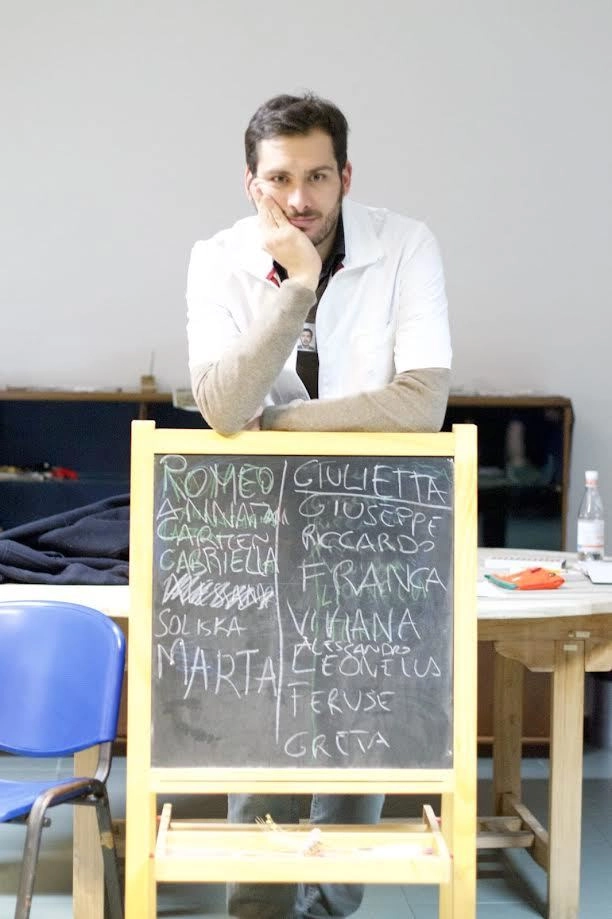 ROMEO
CARMEN
GABRIELLA
SOLISKA
MARTA
GIULIETTA
GIUSEPPE
RICCARDO
FRANCA
VIHANA
ALESSANDRO
LEONELUS
FERUSE
GRETA